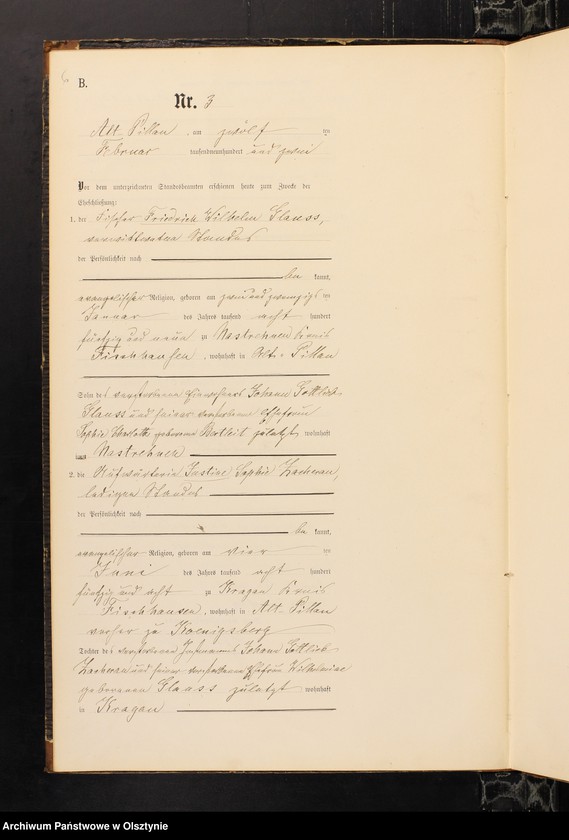 B.
Nr. 3
Alt Pillau, am zwölf ten
Februar tausendneunhundert und zwei
Vor dem unterzeichneten Standesbeamten erschienen heute zum Zwecke der
Eheschließung:
1. der Fischer Friedrich Wilhelm Glauss,
verwittweten Standes
der Persönlichkeit nach
be kannt,
evangelischer Religion, geboren am zwei und zwanzigs ten
Januar des Jahres tausend acht hundert
fünfzig und neun zu Nastrehnen Kreis
Fischhausen, wohnhaft in Alt-Pillau
Sohn des verstorbenen Einwohners Johann Gottlieb
Glauss und seiner verstorbenen Ehefrau
Sophie Charlotte geborenen zuletzt wohnhaft
in Nastrehnen
2. die Aufwärterin Justine Sophie Zachrau,
ledigen Standes
der Persönlichkeit nach
be kannt,
evangelischer Religion, geboren am vier ten
Juni des Jahres tausend acht hundert
fünfzig und acht zu Kragau Kreis
Fischhausen, wohnhaft in Alt-Pillau
vorher zu Koenigsberg
Tochter des verstorbenen Instmanns Johann Gottlieb
Zachrau und seiner verstorbenen Ehefrau Wilhelmine
geborenen Glauss zuletzt wohnhaft
in Kragau
Archiwum Państwowe w Olsztynie